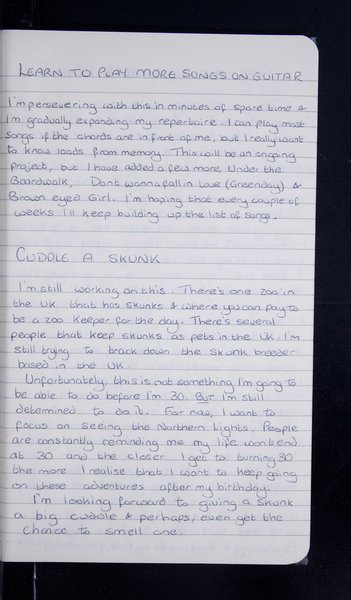 LEARN TO PLAY MORE SONGS ON GUITAR
I'm persevering with this in minutes of spare time &
I'm gradually expanding my repertoire. I can play most
songs if the chords are in front of me, but I really want
to know loads from memory. This will be an ongoing
project, but I have added a few more, Under the
Boardwalk, Dont wanna fall in Love (Greenday) &
Brown eyed Girl. I'm hoping that every couple of
weeks I'll keep building up the list of songs.
CUDDLE A SKUNK
I'm still working on this. There's one zoo in
the UK that has skunks & where you can pay to
be a zoo keeper for the day. There's several
people that keep skunks as pets in the UK. I'm
still trying to track down the skunk breeder
based in the UK.
Unfortunately, this is not something I'm going to
be able to do before I'm 30. BUT I'm still
determined to do it. For now, I want to
focus on seeing the Northern Lights. People
are constantly reminding me my life won't end
at 30 and the closer I get to turning 30
the more I realise that I want to keep going
on these adventures after my birthday.
I'm looking forward to giving a skunk
a big cuddle & perhaps, even get the
chance to smell one.